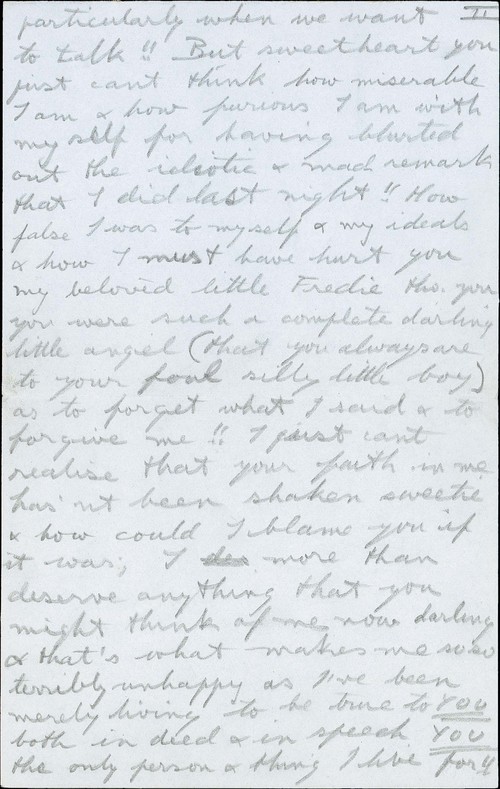 particularly when we want II
to talk!! But sweetheart you
just cant think how miserable
I am & how furious I am with
my self for having blurted
out the idiotic & mad remark
that I did last night!! How
false I was to myself & my ideals
& how I must have hurt you
my beloved little Fredie tho. you
you were such a complete darling
little angel (that you always are
to your foul silly little boy)
as to forget what I said & to
forgive me!! I just cant
realise that your faith in me
has'nt been shaken sweetie
& how could I blame you if
it was; I more than
deserve anything that you
might think of me now darling
& that's what makes me so so
terribly unhappy as I've been
merely living to be true to YOU
both in deed & in speech YOU
the only person & thing I live for!!